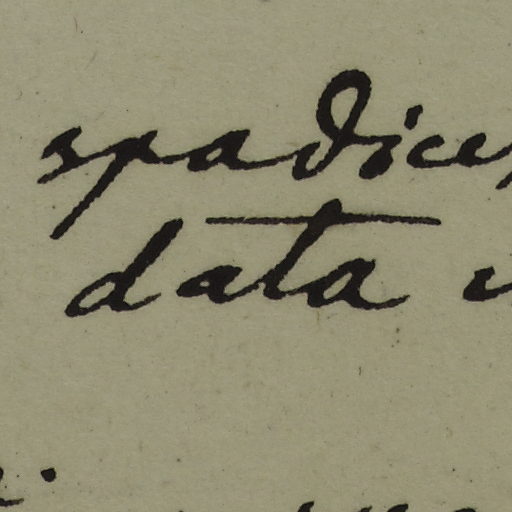 spadice,
data